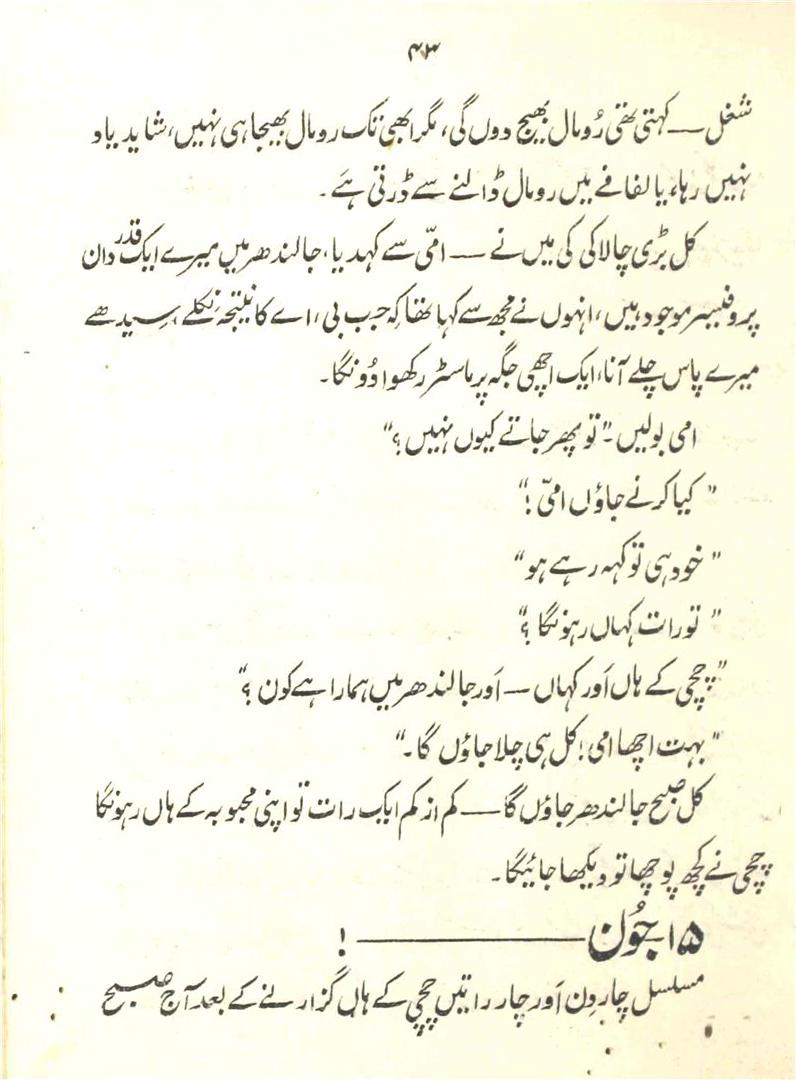 ۴۳
شغل — کہتی تھی رُومال بھیج دوں گی، مگر ابھی تک رومال بھیجا ہی نہیں، شاید یاد
نہیں رہا، یا لفافے میں رومال ڈالنے سے ڈرتی ہَے۔
کل بڑی چالاکی کی میں نے — امّی سے کہدیا، جالندھر میں میرے ایک قدر دان
پروفیسر موجود ہیں، انہوں نے مجھ سے کہا تھا کہ جب بی، اے کا نتیجہ نکلے، سیدھے
میرے پاس چلے آنا، ایک اچھی جگہ پر ماسٹر رکھوا دُونگا۔
امی بولیں۔ "تو پھر جاتے کیوں نہیں؟"
"کیا کرنے جاؤں امّی!"
"خود ہی تو کہہ رہے ہو"
"تو رات کہاں رہونگا؟"
"چچی کے ہاں اَور کہاں — اَور جالندھر میں ہمارا ہے کون؟"
"بہت اچھا امی! کل ہی چلا جاؤں گا۔"
کل صبح جالندھر جاؤں گا — کم از کم ایک رات تو اپنی محبوبہ کے ہاں رہونگا
چچی نے کچھ پوچھا تو دیکھا جائیگا۔
۱۵ جُون — !
مسلسل چار دِن اَور چار راتیں چچی کے ہاں گزارنے کے بعد آج صبح